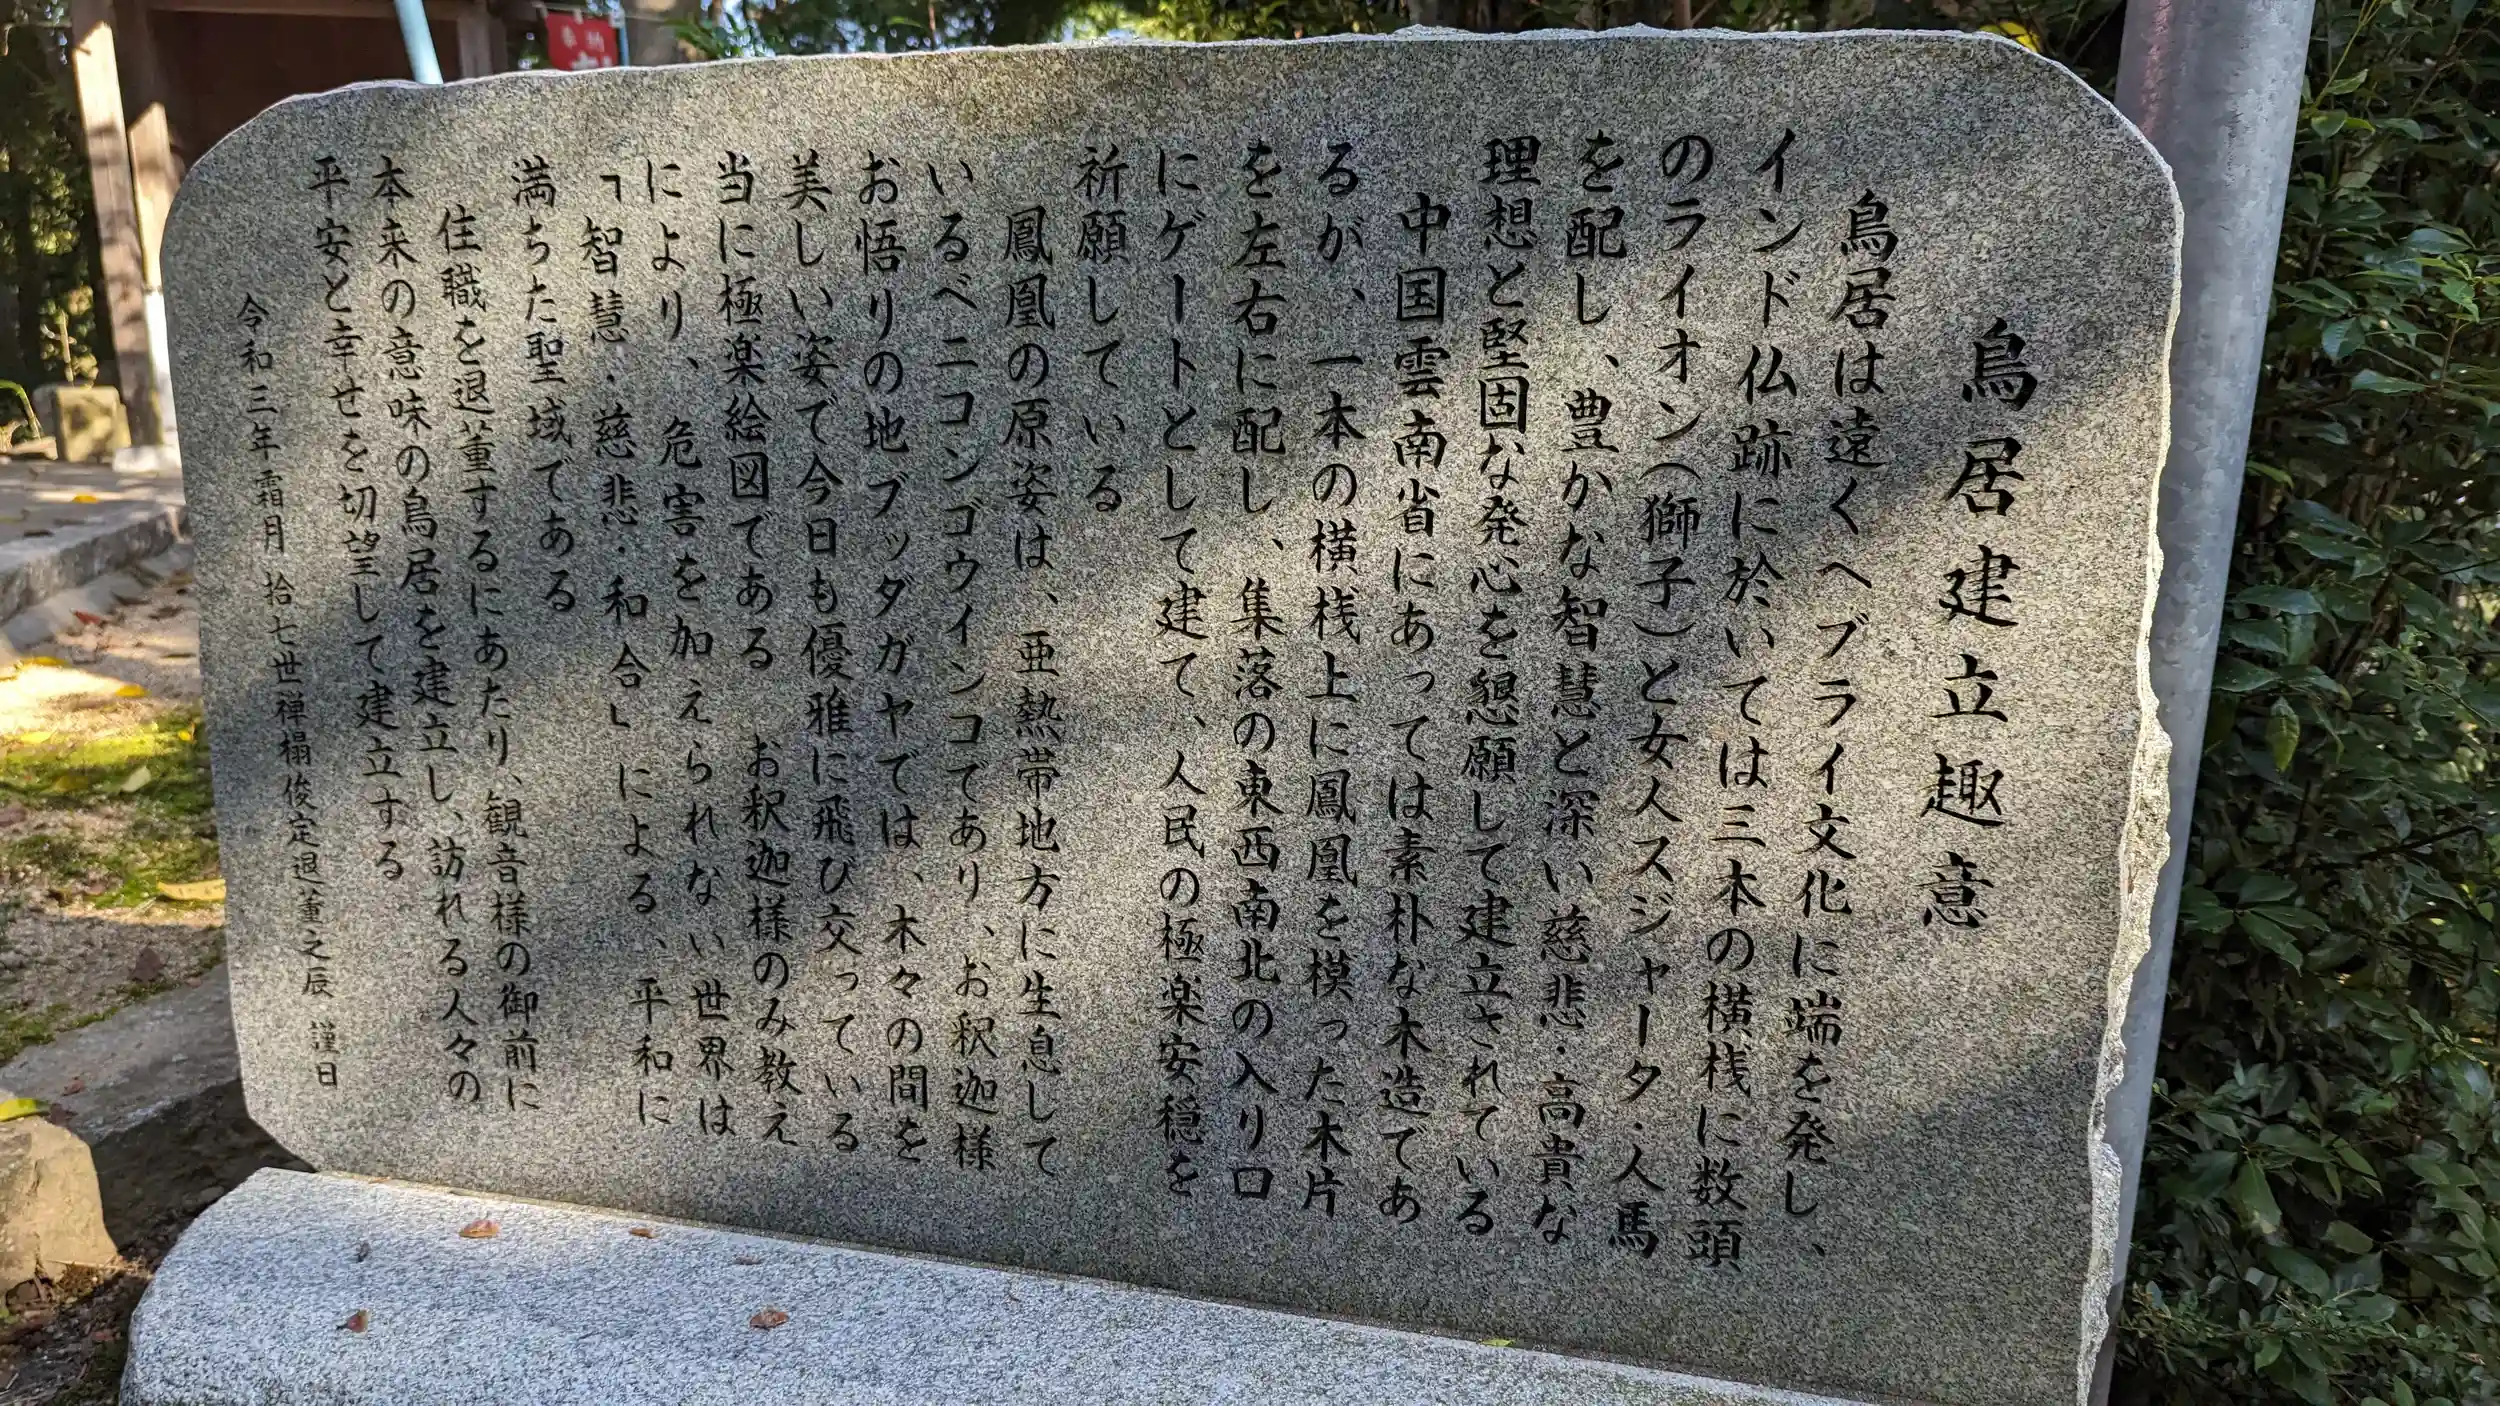 鳥居建立趣意
鳥居は遠くヘブライ文化に端を発し、
インド仏跡に於いては三本の横桟に数頭
のライオン(獅子)と女人スジャータ・人馬
を配し、豊かな智慧と深い慈悲・高貴な
理想と堅固な発心を懇願して建立されている
中国雲南省にあっては素朴な木造であ
るが、一本の横桟上に鳳凰を模った木片
を左右に配し、集落の東西南北の入り口
にゲートとして建て、人民の極楽安穏を
祈願している
鳳凰の原姿は、亜熱帯地方に生息して
いるベニコンゴウインコであり、お釈迦様
お悟りの地ブッダガヤでは、木々の間を
美しい姿で今日も優雅に飛び交っている
当に極楽絵図である お釈迦様のみ教え
により、危害を加えられない世界は
「智慧・慈悲・和合」による、平和に
満ちた聖域である
住職を退董するにあたり、観音様の御前に
本来の意味の鳥居を建立し、訪れる人々の
平安と幸せを切望して建立する
令和三年霜月 拾七世禅榻俊定退董之辰 謹白
奉納